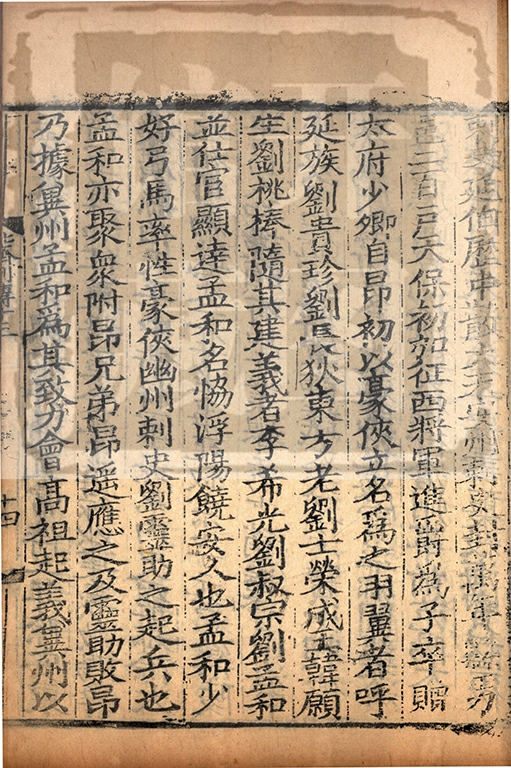 延伯歷中散大夫安州刺史封萬年縣男
邑二百戶天保初加征西將軍進爵為子卒贈
太府少卿自昂初以豪俠立名為之羽翼者呼
延族劉貴珍劉長狄東方老劉士榮成五韓願
生劉桃棒隨其建義者李希光劉叔宗劉孟和
並仕宦顯達孟和名協浮陽饒安人也孟和少
好弓馬率性豪俠幽州刺史劉靈助之起兵也
孟和亦聚衆附昂兄弟昂遥應之及靈助敗昂
乃據冀州孟和為其致力會髙祖起義冀州以
十四